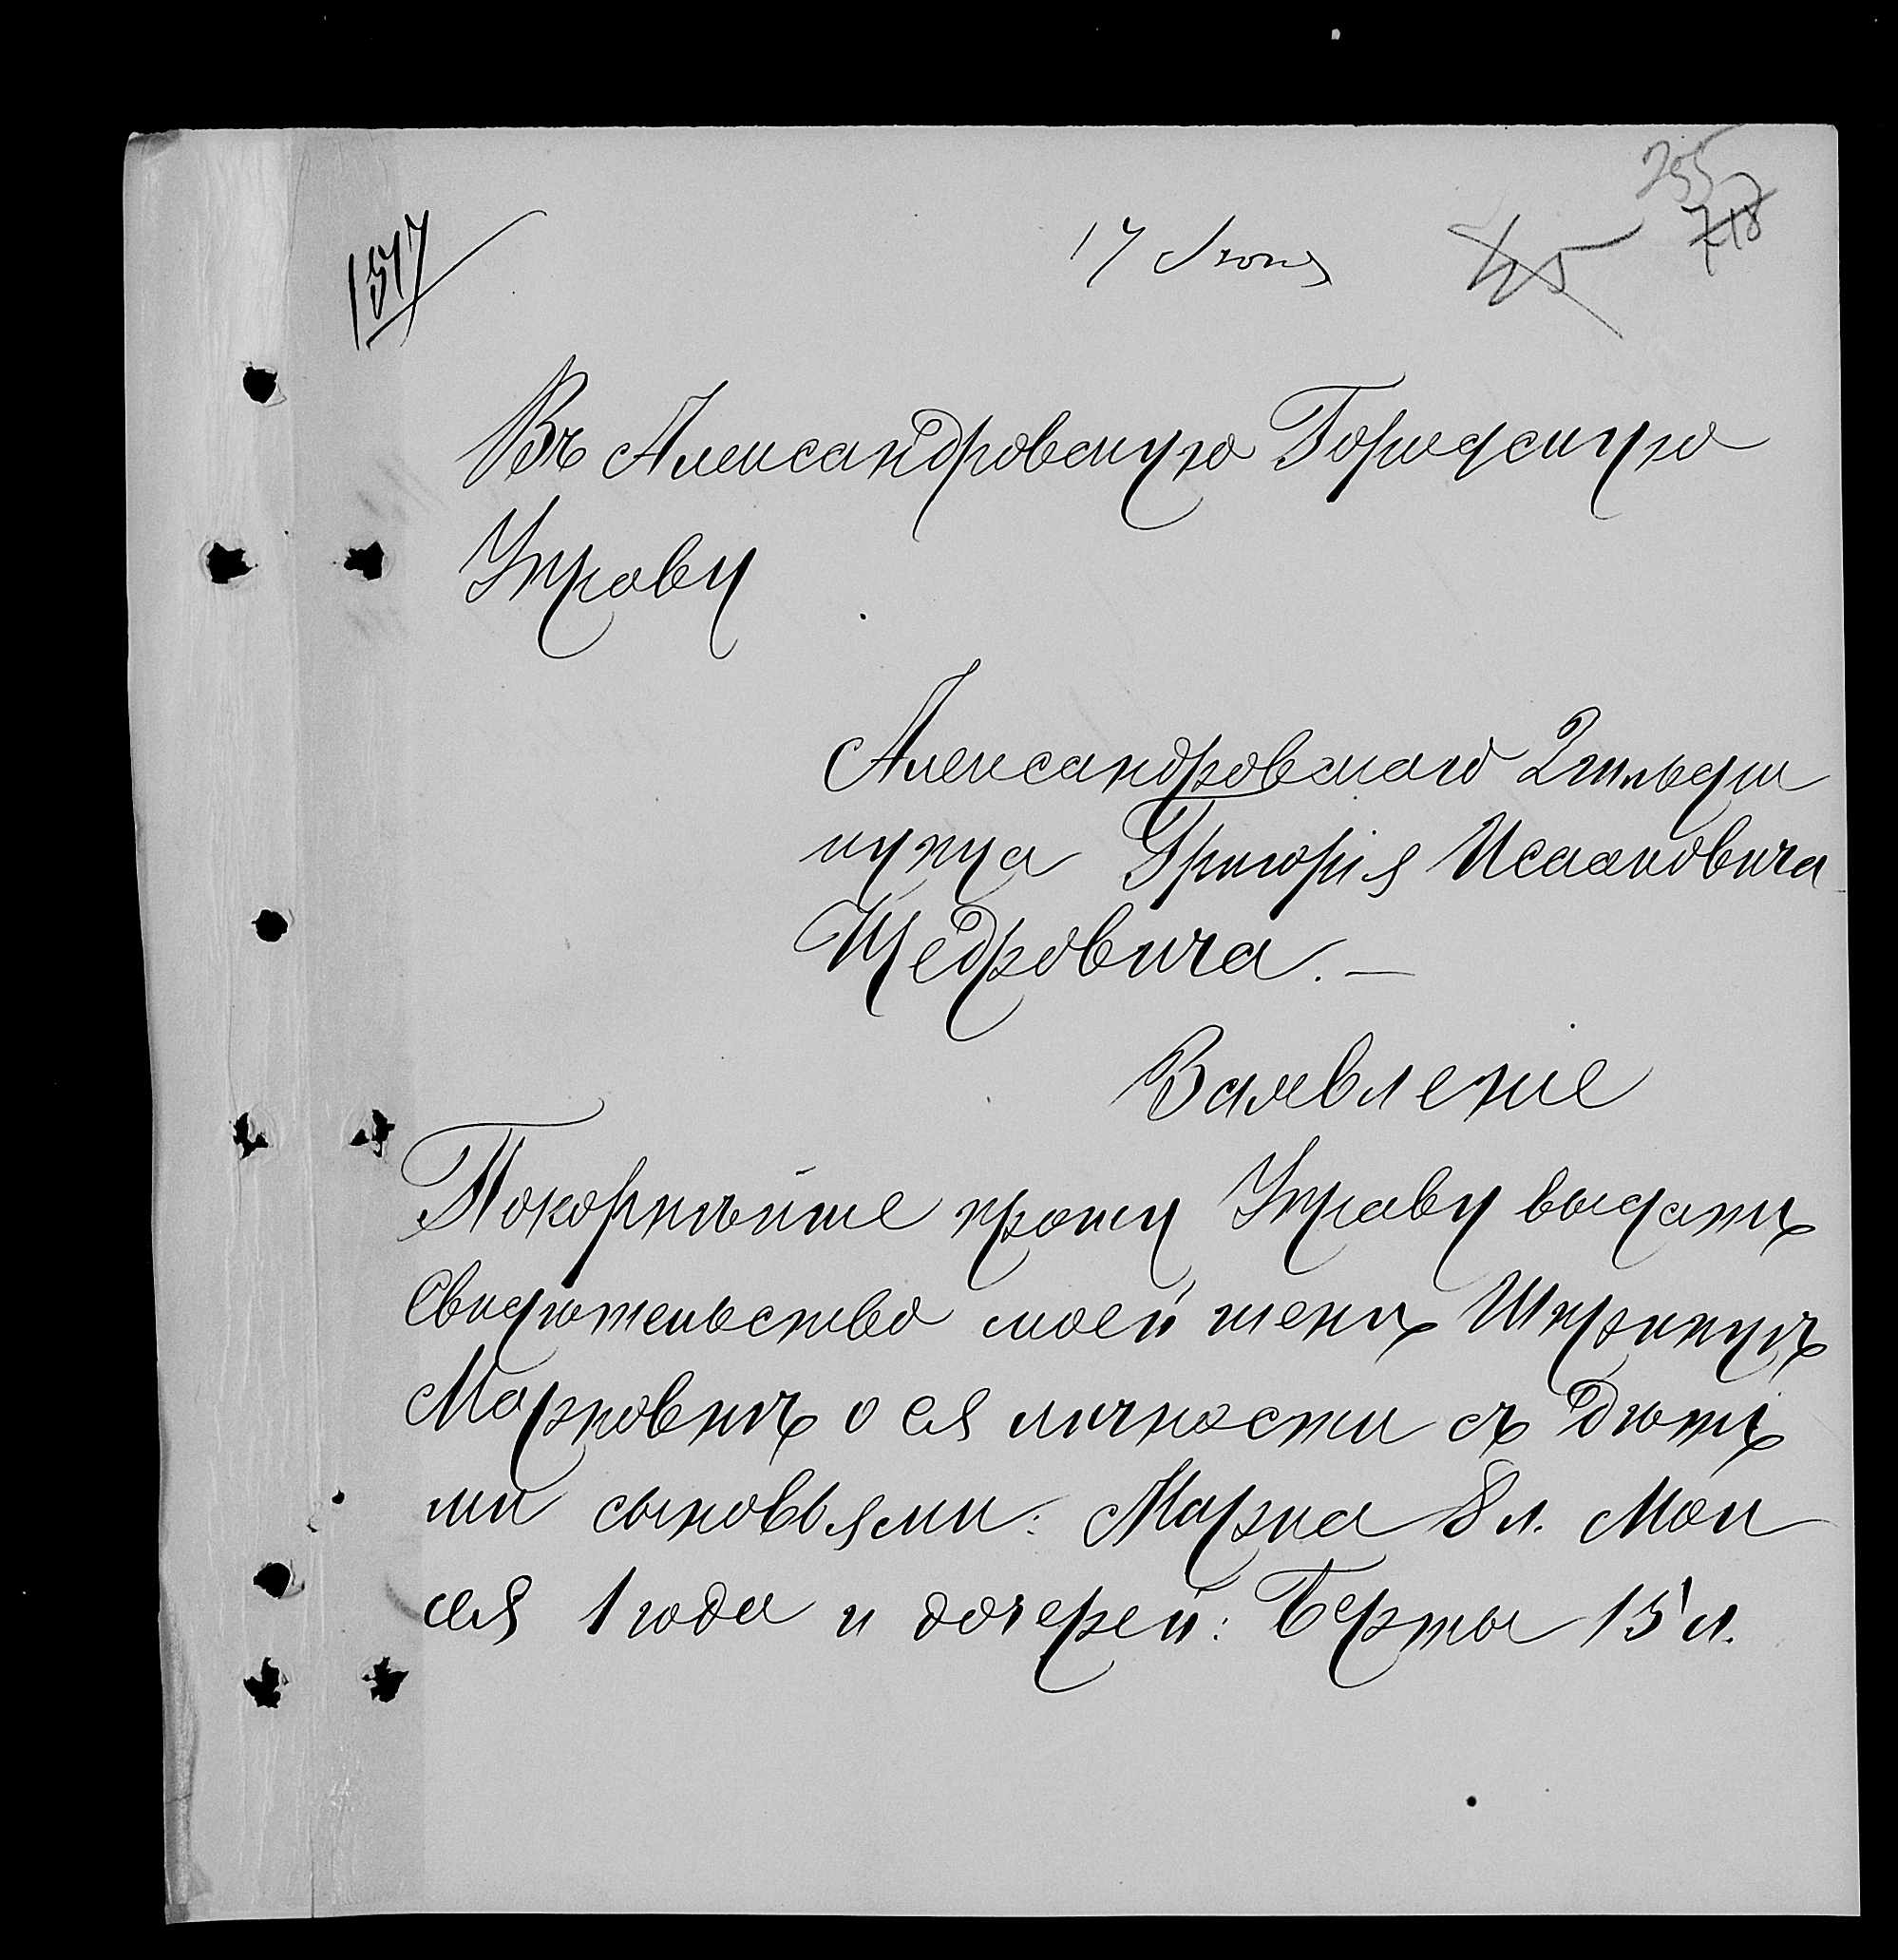 255
718
17 Июня
45
1517
Въ Александровскую Городскую
Управу
Александровскаго 2 гильдіи
купца Григорія Исааковича
Щедровича. —
Заявление
Покорнѣйше прошу Управу выдать
Свидѣтельство моей женѣ
Марковнѣ о ея личности съ дѣть
ми сыновьями: Марка 8 л. Мои
сея 1 года и дочерей: Берты 15 л.